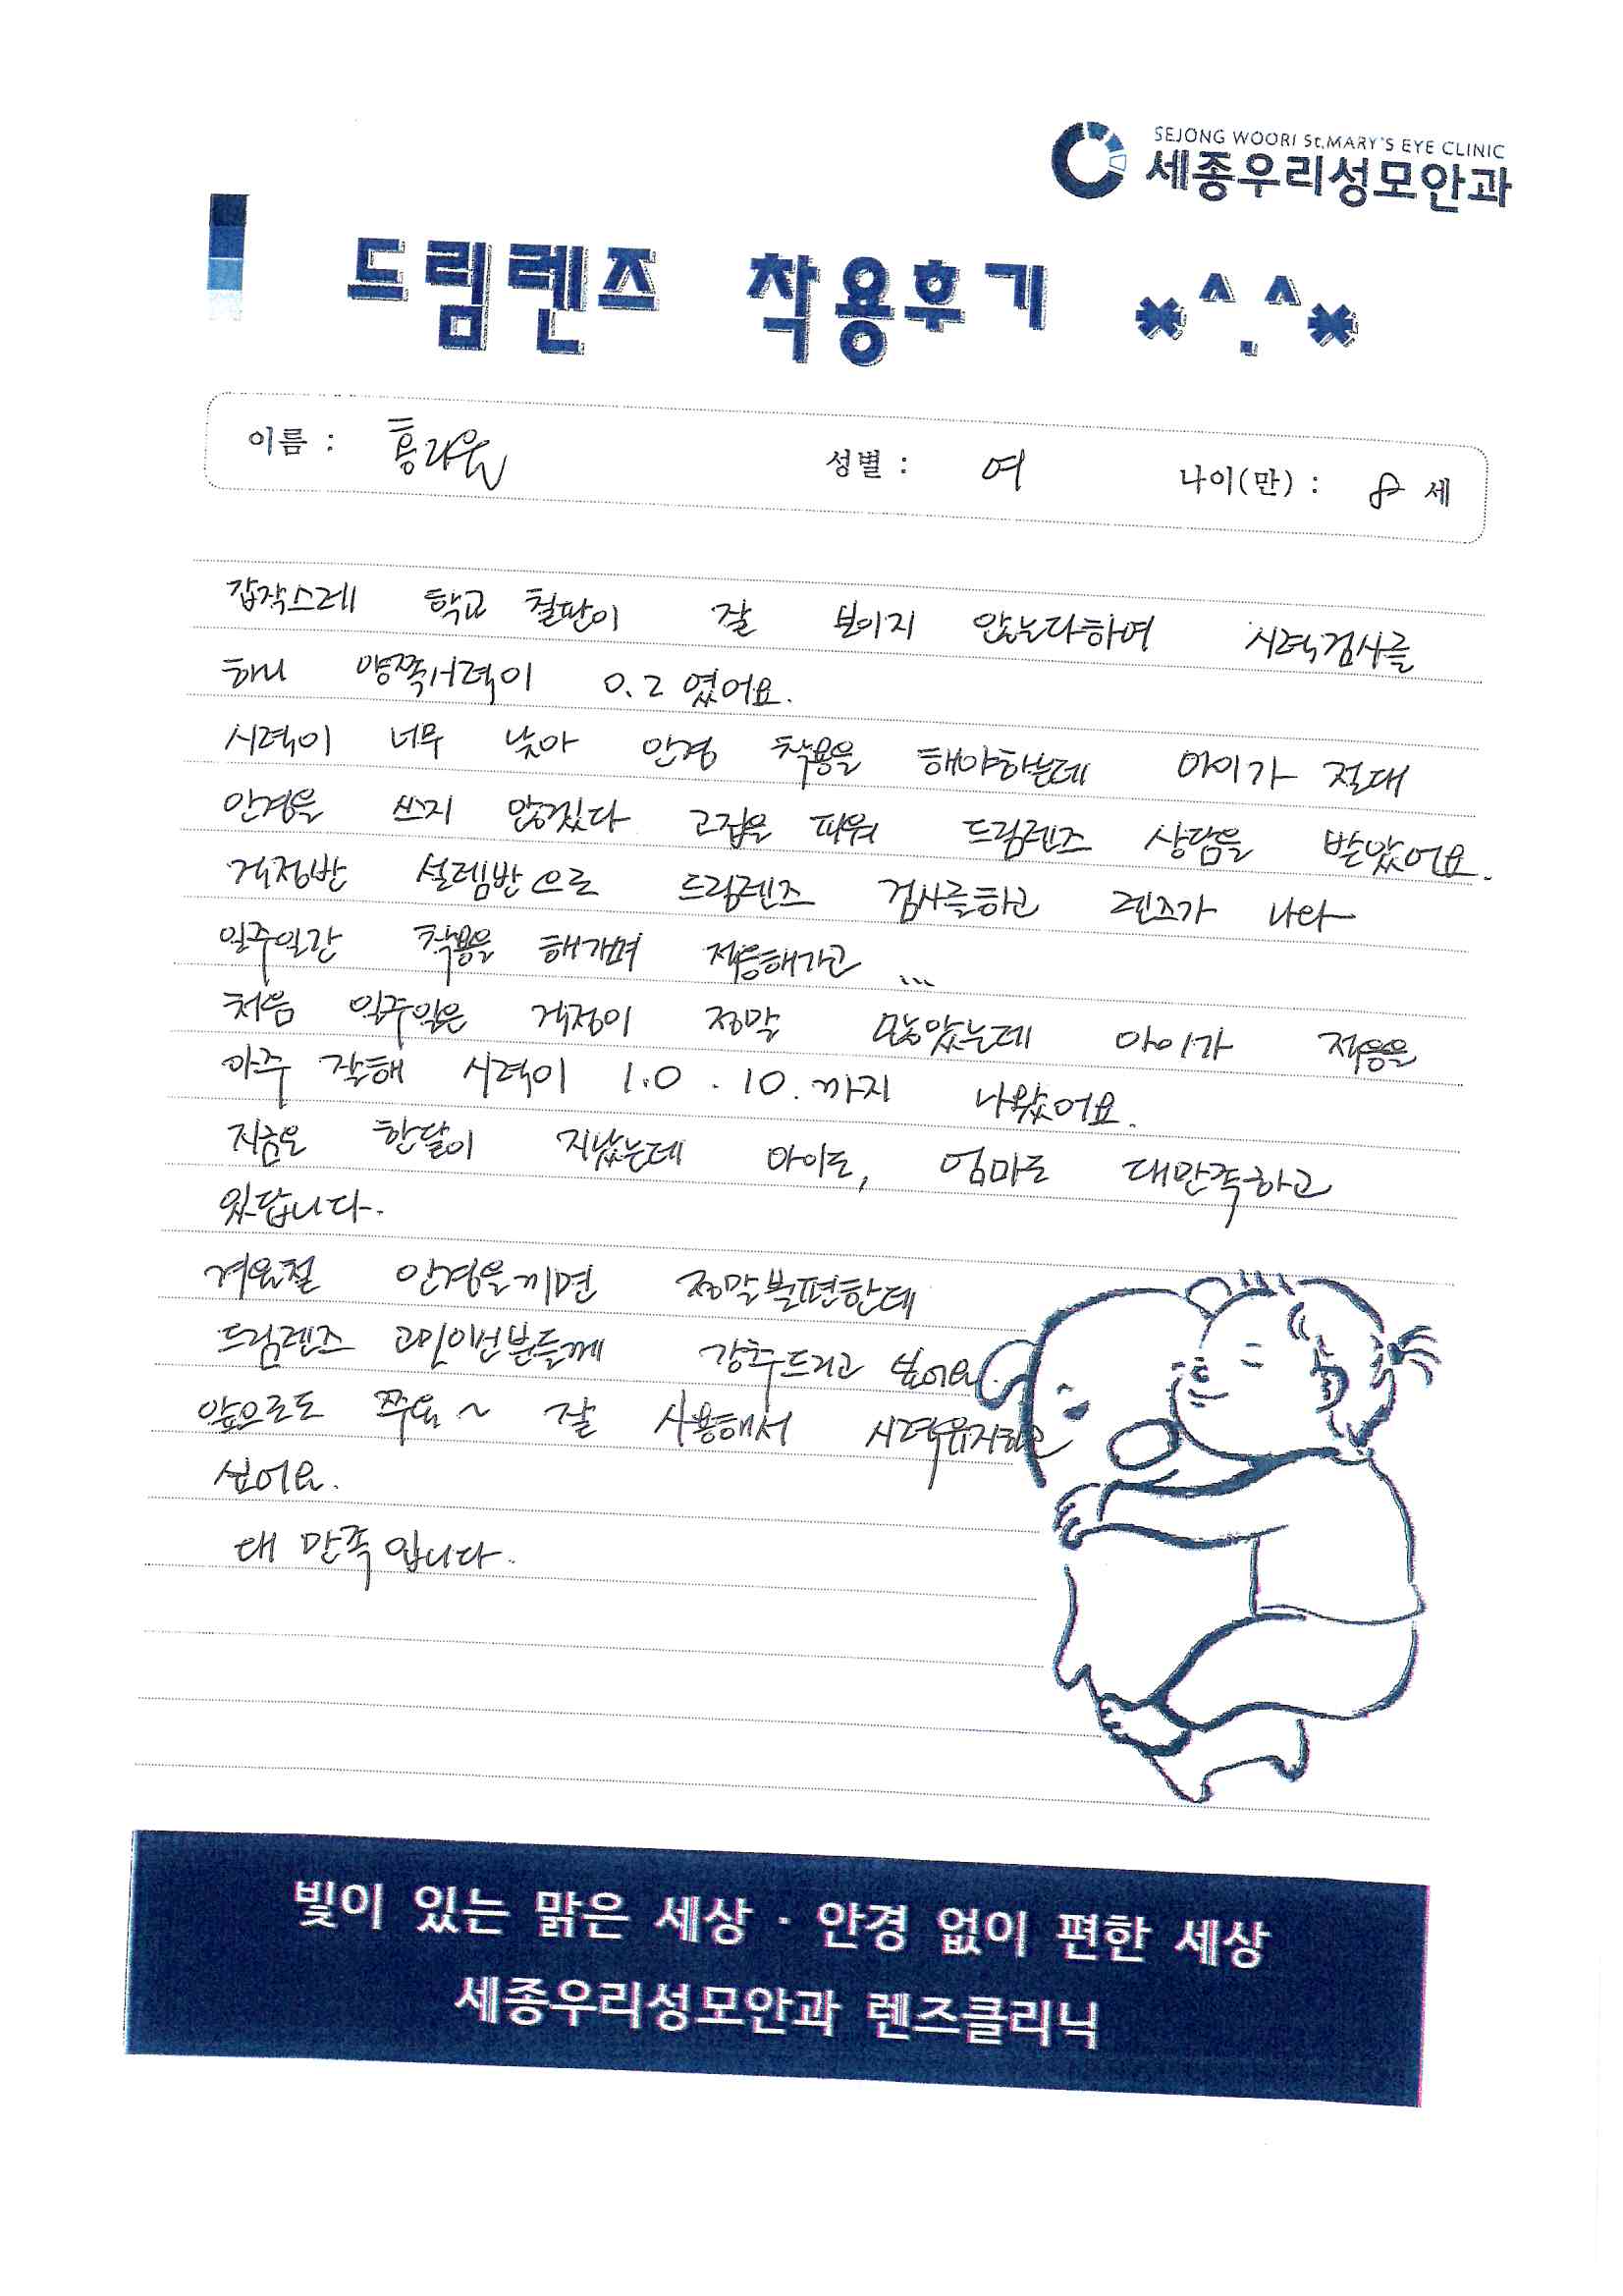 SEJONG WOORI St.MARY'S EYE CLINIC
세종우리성모안과
드림렌즈 착용후기 *^.^*
이름 : 홍라윤 성별 : 여 나이(만) : 8 세
갑작스레 학교 칠판이 잘 보이지 않는다하여 시력검사를
하니 양쪽시력이 0.2 였어요.
시력이 너무 낮아 안경 착용을 해야하는데 아이가 절대
안경을 쓰지 않겠다 고집을 피워 드림렌즈 상담을 받았어요.
걱정반 설렘반으로 드림렌즈 검사를하고 렌즈가 나와
일주일간 착용을 해가며 적응해가고 ...
처음 일주일은 걱정이 정말 많았는데 아이가 적응을
아주 잘해 시력이 1.0 . 10. 까지 나왔어요.
지금은 한달이 지났는데 아이도, 엄마도 대만족하고
있답니다.
겨울철 안경을끼면 정말불편한데
드림렌즈 고민이신분들께 강추드리고 싶어요.
앞으로도 쭈욱 ~ 잘 사용해서 시력유지하고
싶어요.
대 만족입니다.
빛이 있는 맑은 세상 · 안경 없이 편한 세상
세종우리성모안과 렌즈클리닉